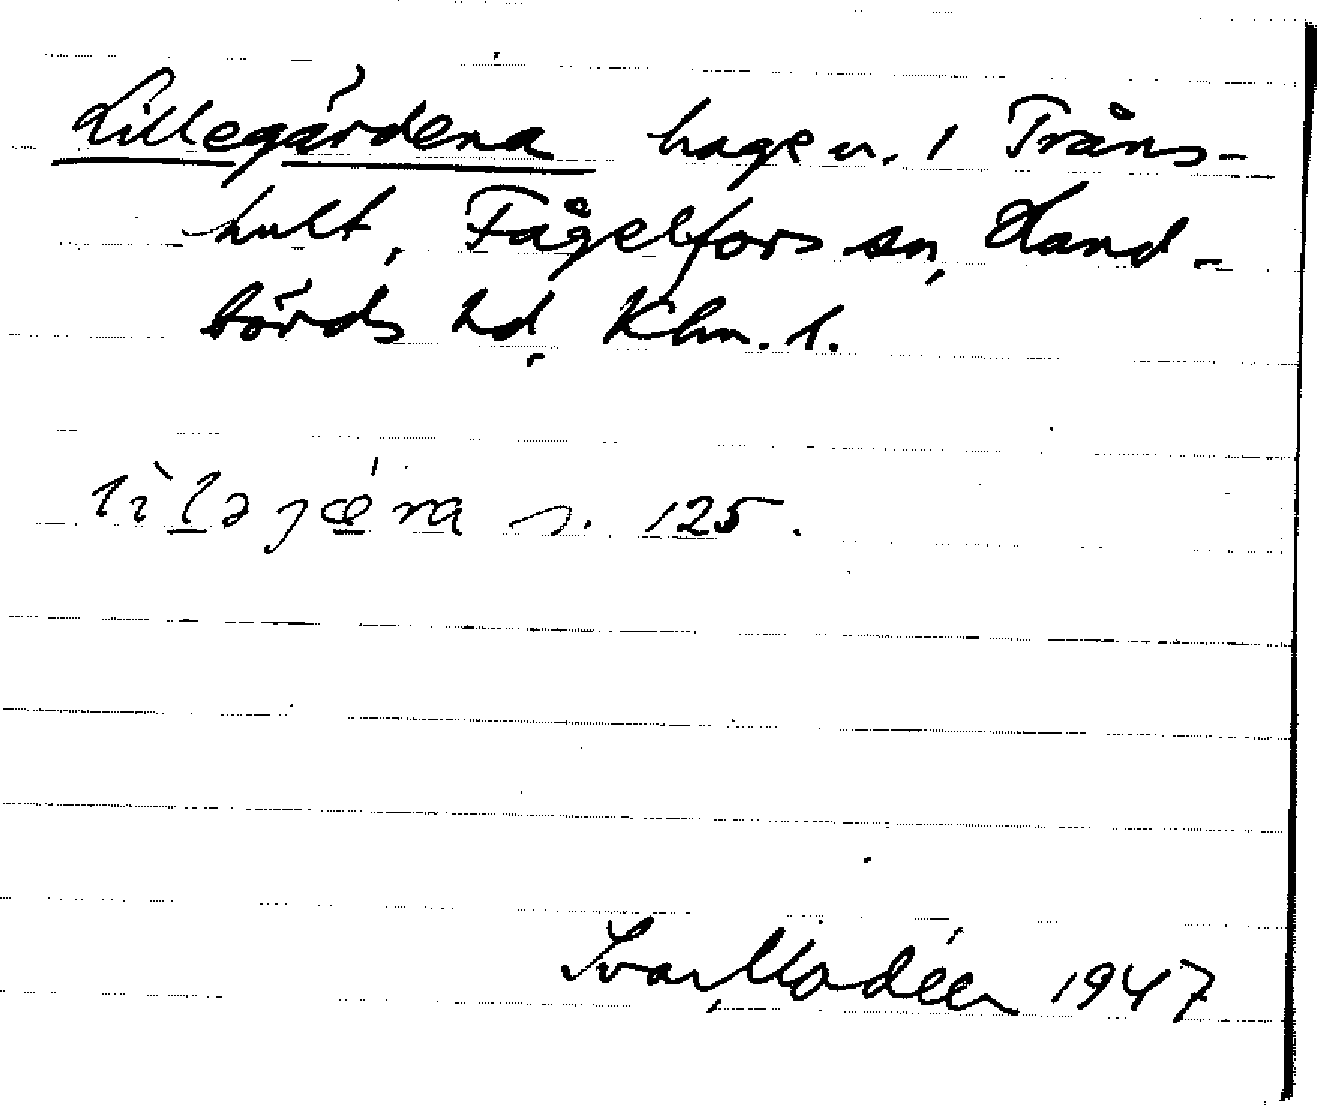 Lillegärdena hage m. i Tråns-
hult, Fågelfors sn, Hand-
börds hd, Klm. l.
s. 125.
Ivar Modéer 1947